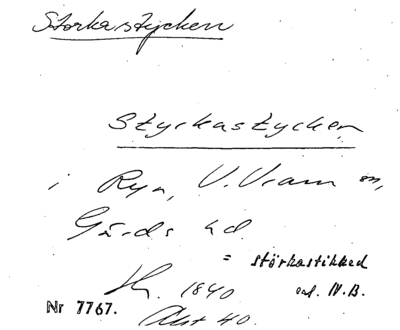 Störkastycken
Styckastycken
i Ryn, V. Vram sn,
Gärds hd.
= störkastikked
Sk. 1840 enl. H.B.
Nr 7767. Akt 40.